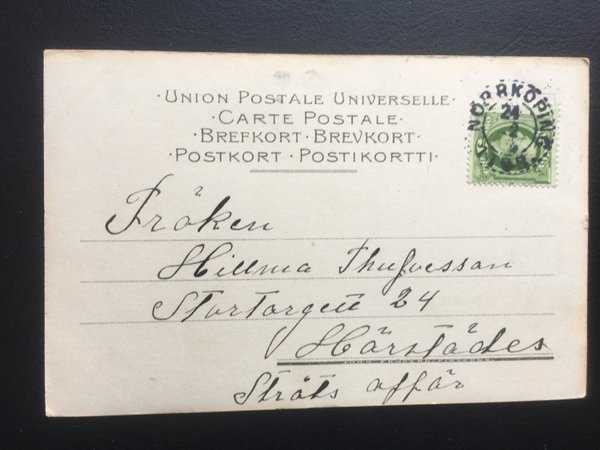 ·UNION POSTALE UNIVERSELLE·
·CARTE POSTALE·
·BREFKORT·BREVKORT·
·POSTKORT·POSTIKORTTI·
NORRKÖPING
24
Fröken
Hillma
Stortorget 24
Härstädes
Stråts affär